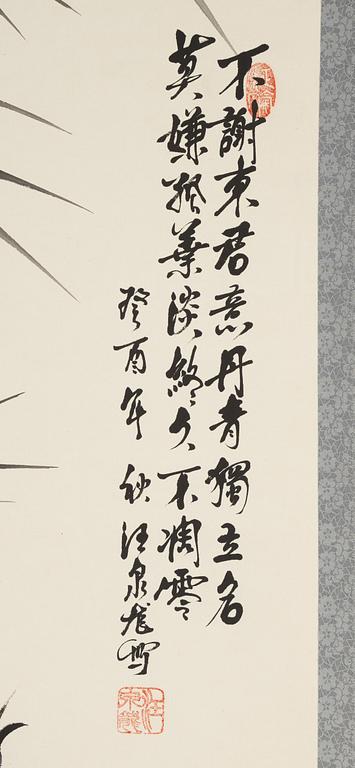 不謝東君意丹青獨立名
莫嫌孤葉淡終久不凋零
癸酉年秋汪泉龙寫